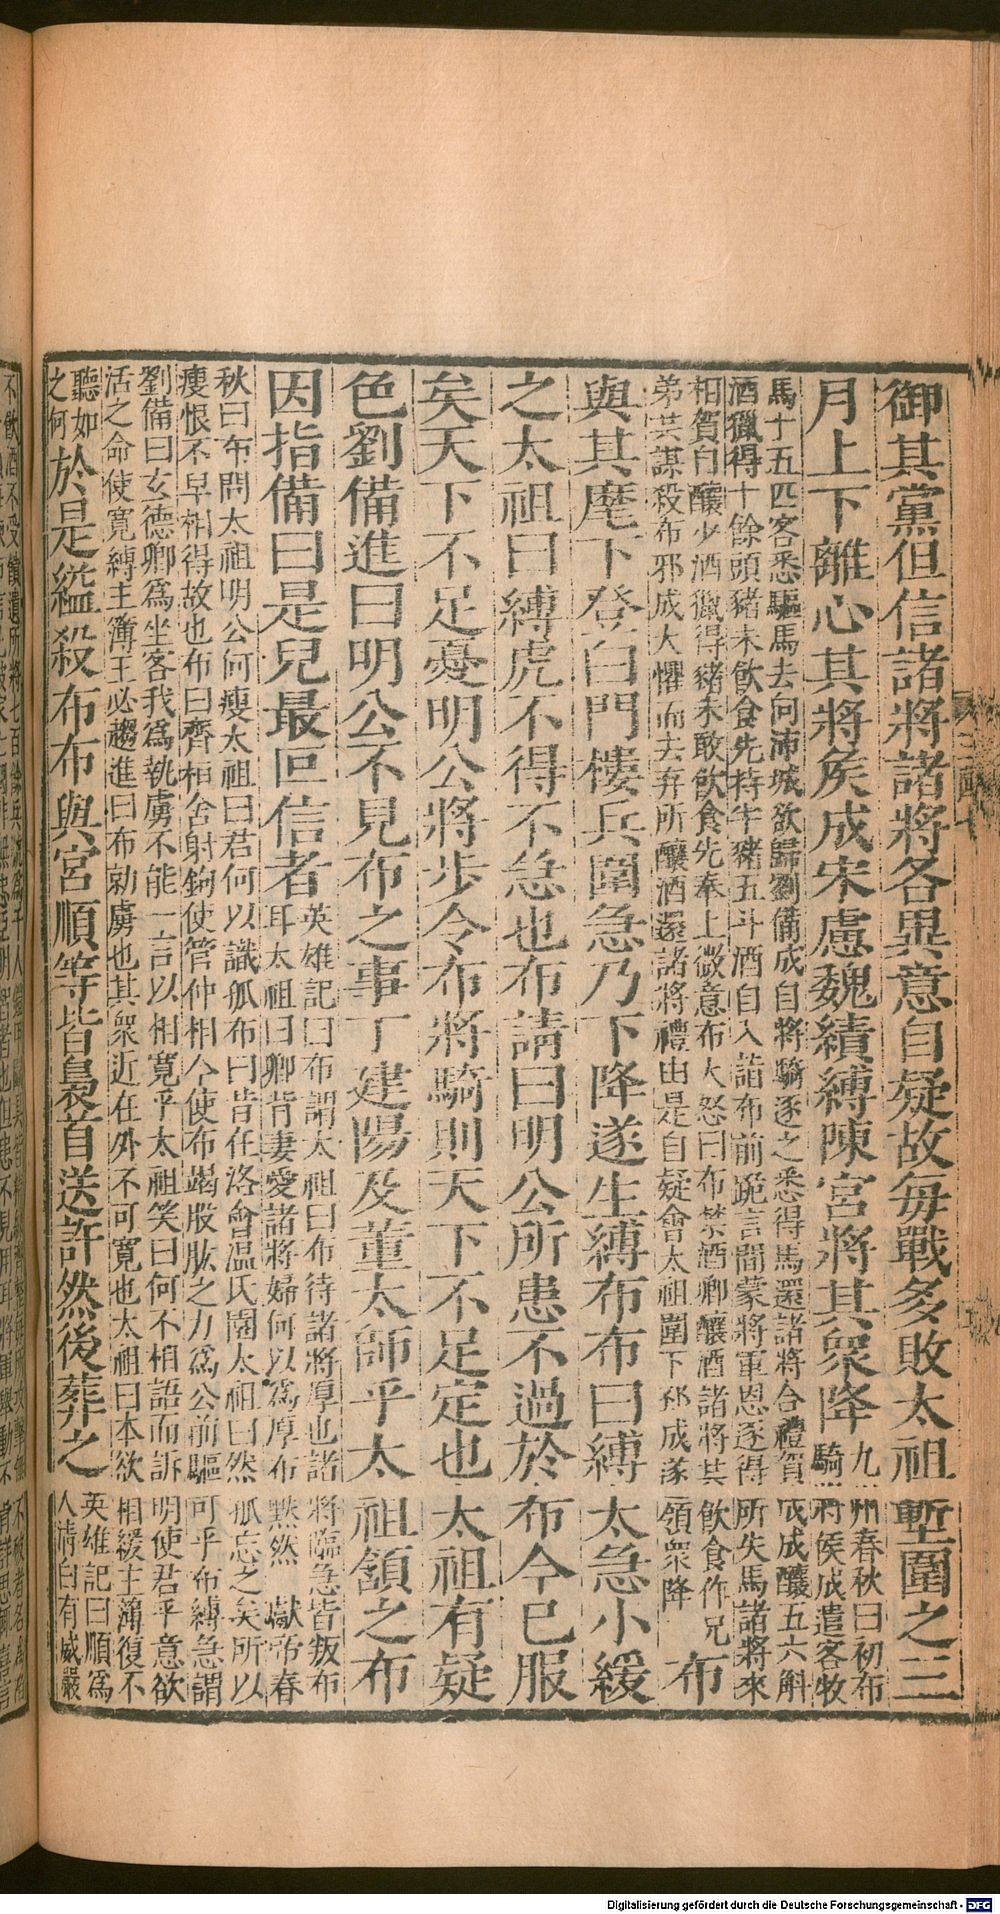 御其黨但信諸將諸將各異意自疑故每戰多敗太祖塹圍之三
月上下離心其將侯成宋慮魏續縛陳宮將其衆降九州春秋曰初布
騎將侯成遣客牧
馬十五匹客悉驅馬去向沛城欲歸劉備成自將騎逐之悉得馬還諸將合禮賀成成釀五六斛
酒獵得十餘頭豬未飲食先持半豬五斗酒自入詣布前跪言間蒙將軍恩逐得所失馬諸將來
相賀自釀少酒獵得豬未敢飲食先奉上微意布大怒曰布禁酒卿釀酒諸將共飲食作兄
弟共謀殺布邪成大懼而去弃所釀酒還諸將禮由是自疑會太祖圍下邳成遂領衆降
布
與其麾下登白門樓兵圍急乃下降遂生縛布布曰縛太急小緩
之太祖曰縛虎不得不急也布請曰明公所患不過於布今已服
矣天下不足憂明公將步令布將騎則天下不足定也太祖有疑
色劉備進曰明公不見布之事丁建陽及董太師乎太祖頷之布
因指備曰是兒最叵信者英雄記曰布謂太祖曰布待諸將厚也諸將臨急皆叛布
耳太祖曰卿背妻愛諸將婦何以爲厚布黙然 獻帝春
秋曰布問太祖明公何瘦太祖曰君何以識孤布曰昔在洛會温氏園太祖曰然孤忘之矣所以
瘦恨不早相得故也布曰齊桓舍射鉤使管仲相今使布竭股肱之力爲公前驅可乎布縛急謂
劉備曰玄德卿爲坐客我爲執虜不能一言以相寬乎太祖笑曰何不相語而訴明使君乎意欲
活之命使寛縛主簿王必趨進曰布勍虜也其衆近在外不可寬也太祖曰本欲相緩主簿復不
聽如
之何
於是縊殺布布與宮順等皆梟首送許然後葬之英雄記曰順爲
人清白有威嚴
Digitalisierung gefördert durch die Deutsche Forschungsgemeinschaft - DFG